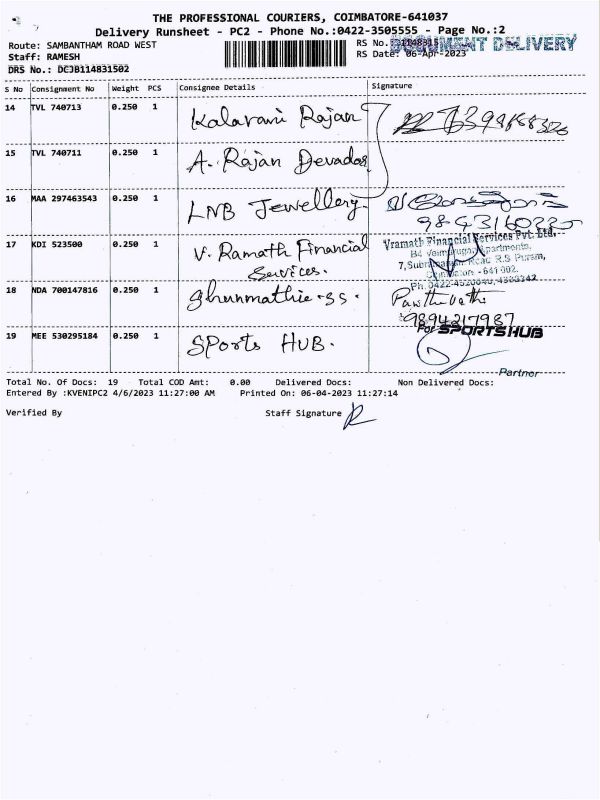 THE PROFESSIONAL COURIERS, COIMBATORE-641037
Delivery Runsheet - PC2 - Phone No.:0422-3505555 - Page No.:2
Route: SAMBANTHAM ROAD WEST
RS No.
DOCUMENT DELIVERY
Staff: RAMESH
RS Date: 06-Apr-2023
DRS No.: DCJB114831502
S No Consignment No Weight PCS Consignee Details Signature
14 TVL 740713 0.250 1 Kalavani Rajan
15 TVL 740711 0.250 1 A. Rajan Devadas
16 MAA 297463543 0.250 1 LNB Jewellery.
17 KDI 523500 0.250 1 V. Ramath Financial
Services.
Vramath Financial Services Pvt. Ltd.
18 NDA 700147816 0.250 1
9894217987
19 MEE 530295184 0.250 1 SPorts HUB.
For SPORTS HUB
Partner
Total No. Of Docs: 19 Total COD Amt: 0.00 Delivered Docs: Non Delivered Docs:
Entered By :KVENIPC2 4/6/2023 11:27:00 AM Printed On: 06-04-2023 11:27:14
Verified By Staff Signature